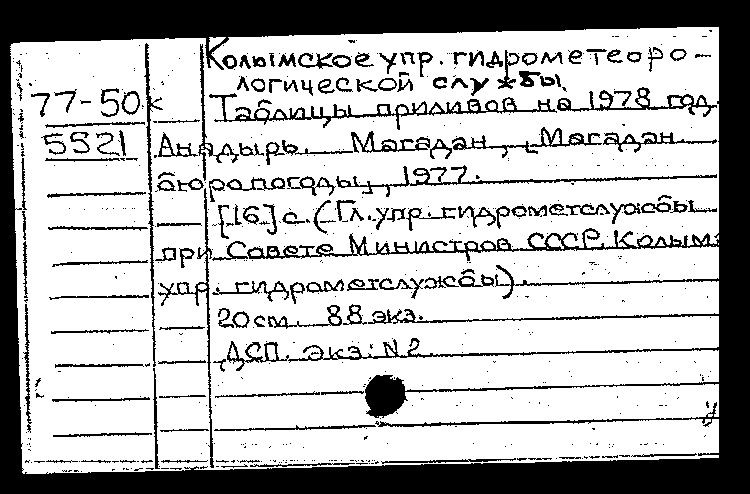 Колымское упр. гидрометеоро-
логической службы.
77-50к Таблицы приливов на 1978 год.
5521 Анадырь. Магадан, [Магадан.
бюро погоды], 1977.
[16] с. (Гл. упр. гидрометслужбы
при Совете Министров СССР. Колым.
упр. гидрометслужбы).
20 см. 88 экз.
ДСП. Экз: N 2.